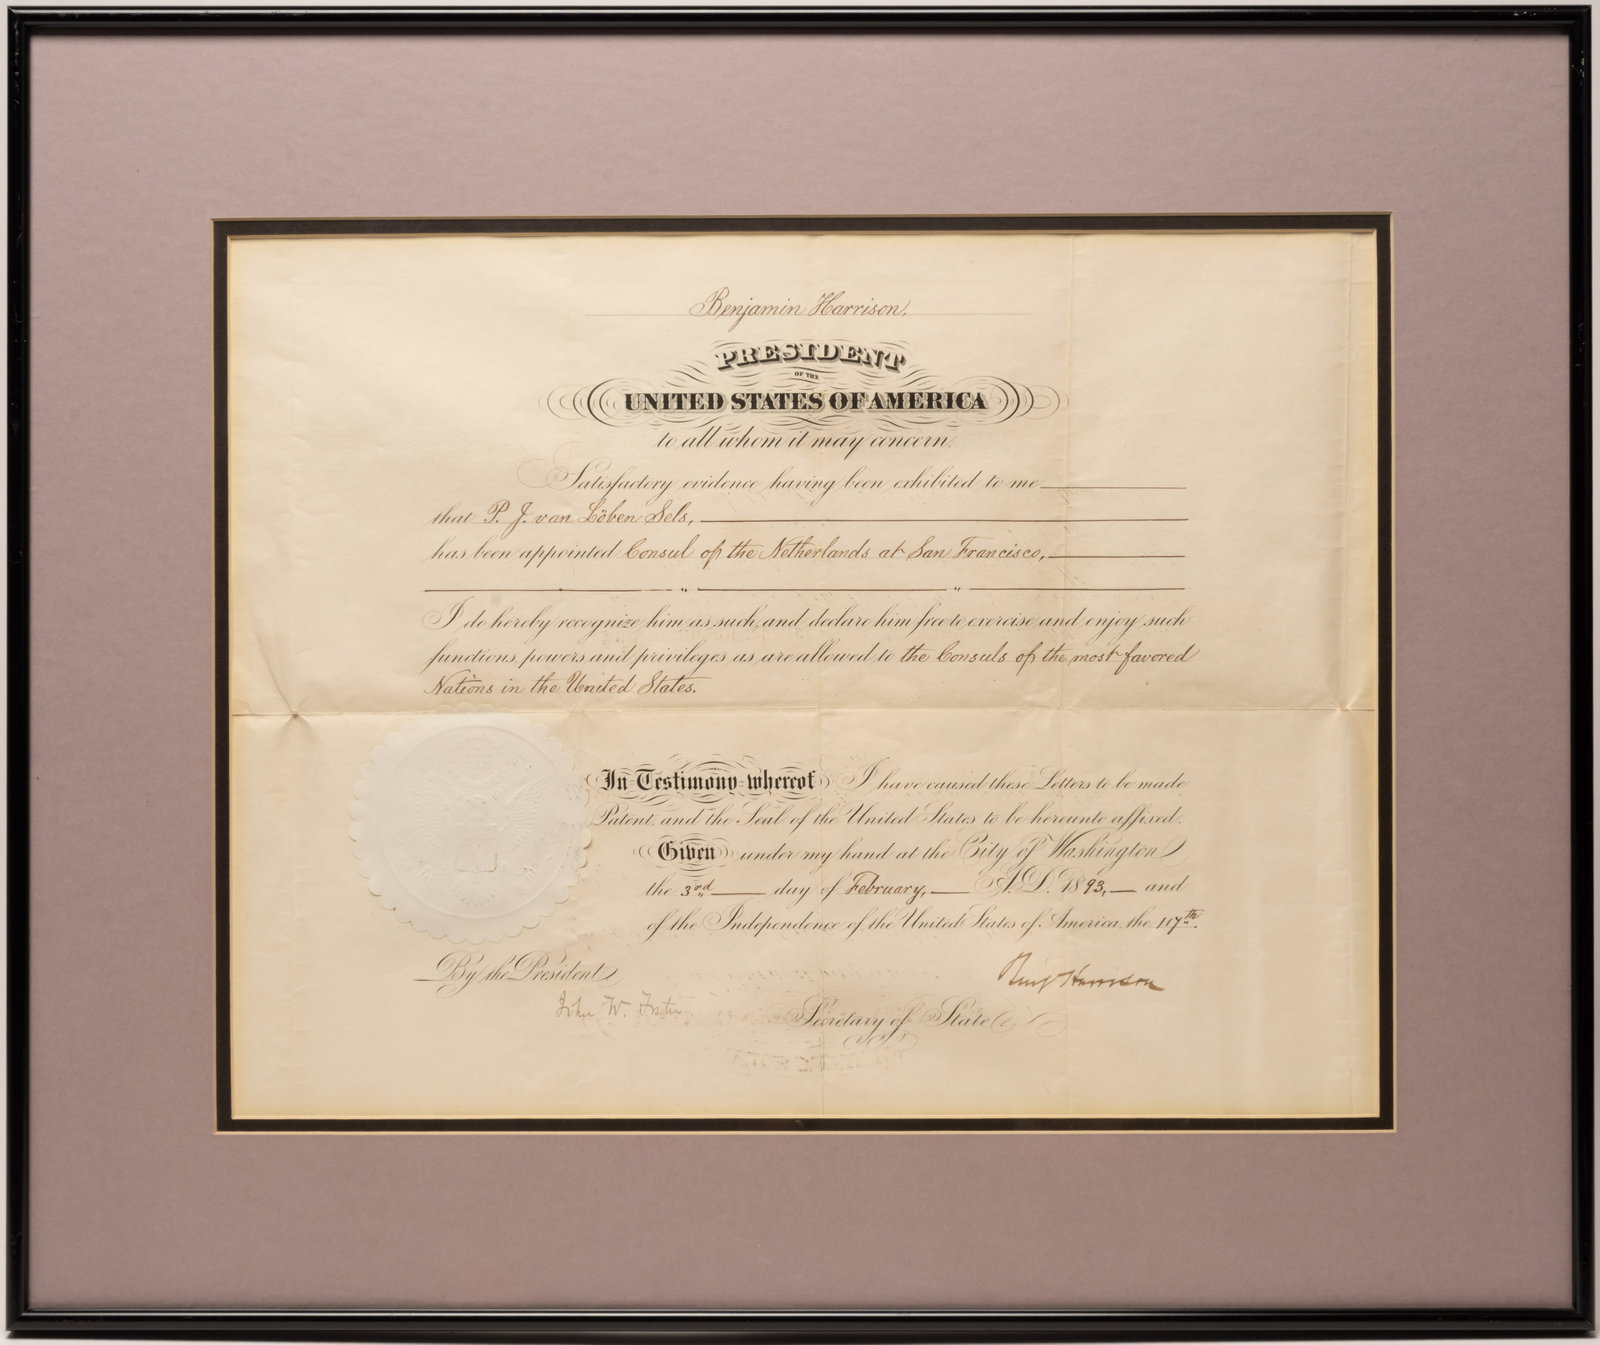 Benjamin Harrison,
PRESIDENT
OF THE
UNITED STATES OF AMERICA
to all whom it may concern.
Satisfactory evidence having been exhibited to me
that P. J. van Löben Sels,
has been appointed Consul of the Netherlands at San Francisco,
" "
I do hereby recognize him as such, and declare him free to exercise and enjoy such
functions, powers and privileges as are allowed to the Consuls of the most favored
Nations in the United States.
In Testimony whereof I have caused these Letters to be made
Patent, and the Seal of the United States to be hereunto affixed.
Given under my hand at the City of Washington
the 3rd day of February, A.D. 1893, and
of the Independence of the United States of America, the 117th.
By the President
Benj Harrison
John W. Foster
Secretary of State